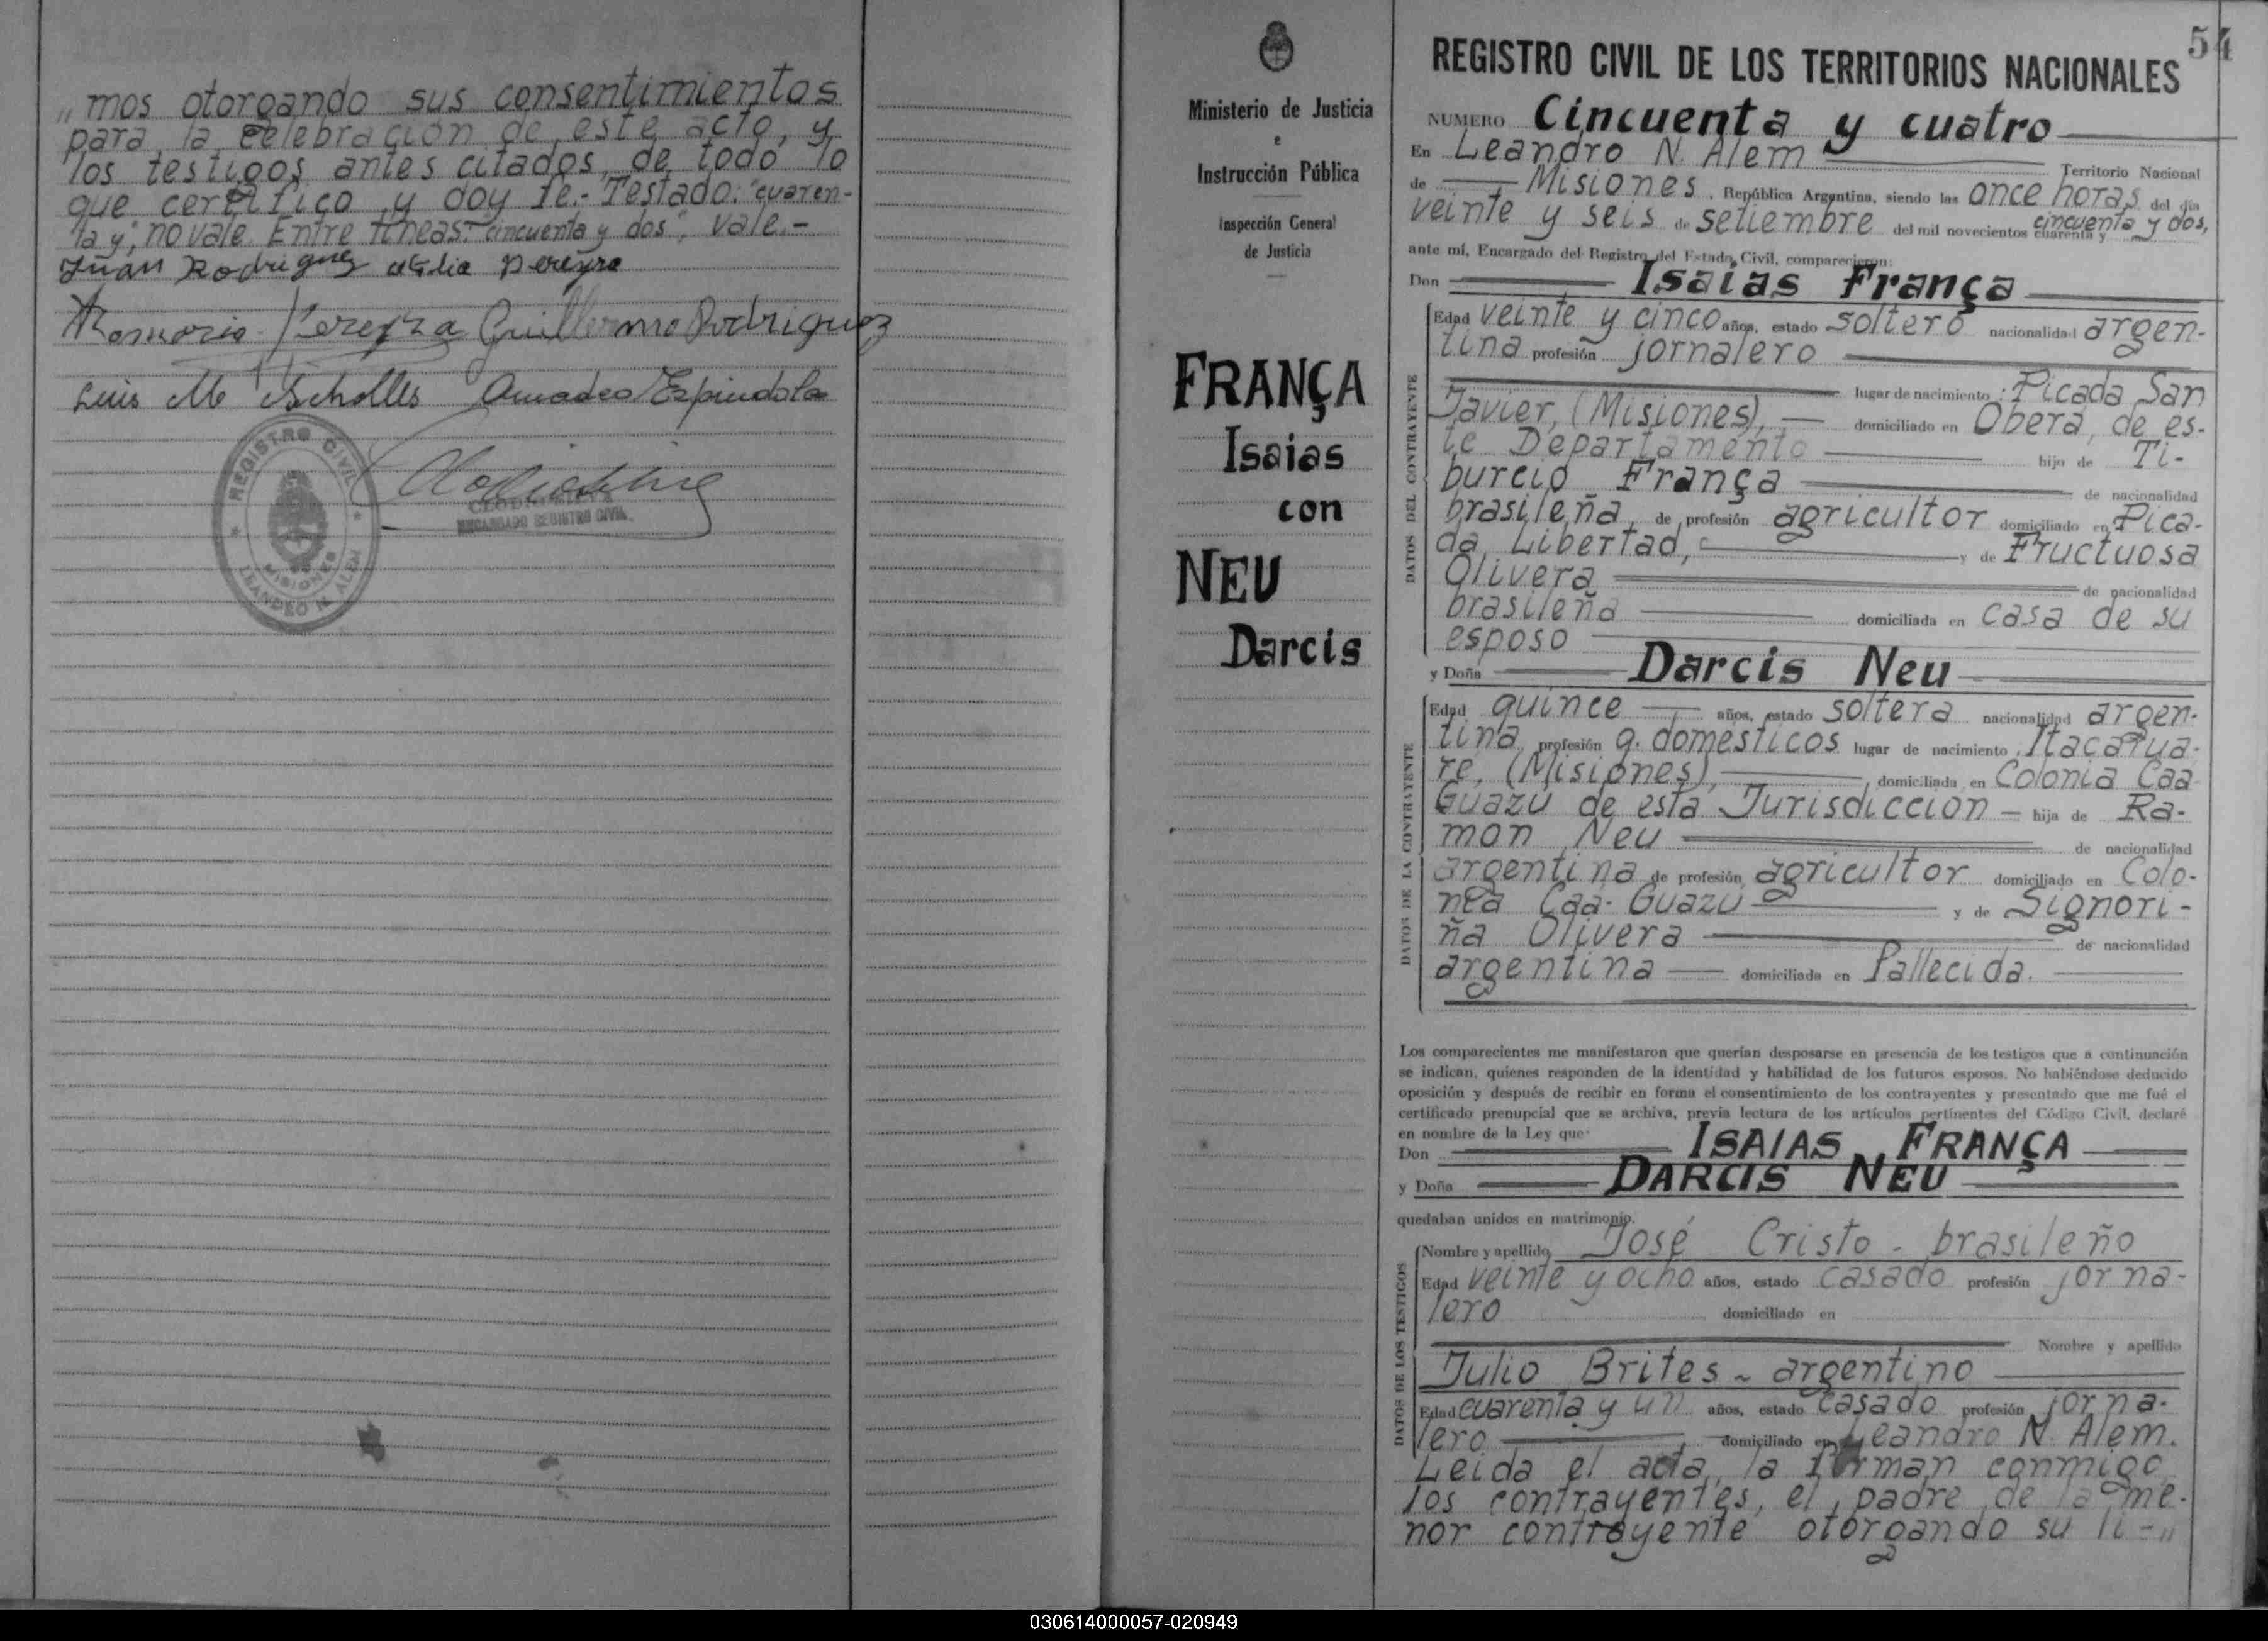 „mos otorgando sus consentimientos
para la celebración de este acto, y
los testigos antes citados, de todo lo
que certifico y doy fe.- Testado: "cuaren-
ta y", no vale. Entre lineas: "cincuenta y dos", vale.-
Juan Rodriguez Otilia Pereyra
Pereyra Guillermo Rodriguez
Luis M Scholles Amadeo Espindola
REGISTRO CIVIL
MISIONES
LEANDRO N. ALEM
ENCARGADO REGISTRO CIVIL
Ministerio de Justicia
e
Instrucción Pública
Inspección General
de Justicia
FRANÇA
Isaias
con
NEU
Darcis
54
REGISTRO CIVIL DE LOS TERRITORIOS NACIONALES
NUMERO Cincuenta y cuatro
En Leandro N. Alem Territorio Nacional
de Misiones, República Argentina, siendo las once horas del día
veinte y seis de setiembre del mil novecientos cuarenta y cincuenta y dos,
ante mí, Encargado del Registro del Estado Civil, comparecieron:
Don Isaias França
DATOS DEL CONTRAYENTE
Edad veinte y cinco años, estado soltero nacionalidad argen-
tina profesión jornalero
lugar de nacimiento: Picada San
Javier, (Misiones), domiciliado en Obera, de es-
te Departamento hijo de Ti-
burcio França de nacionalidad
brasileña de profesión agricultor domiciliado en Pica-
da Libertad, y de Fructuosa
Olivera de nacionalidad
brasileña domiciliada en casa de su
esposo
y Doña Darcis Neu
DATOS DE LA CONTRAYENTE
Edad quince años, estado soltera nacionalidad argen-
tina profesión q. domésticos lugar de nacimiento Itacarua-
re, (Misiones), domiciliada en Colonia Caa
Guazú de esta Jurisdicción hija de Ra-
mon Neu de nacionalidad
argentina de profesión agricultor domiciliado en Colo-
nea Caa-Guazú y de Signori-
ña Olivera de nacionalidad
argentina domiciliada en Fallecida.
Los comparecientes me manifestaron que querían desposarse en presencia de los testigos que a continuación
se indican, quienes responden de la identidad y habilidad de los futuros esposos. No habiéndose deducido
oposición y después de recibir en forma el consentimiento de los contrayentes y presentado que me fué el
certificado prenupcial que se archiva, previa lectura de los artículos pertinentes del Código Civil, declaré
en nombre de la Ley que
Don ISAIAS FRANÇA
y Doña DARCIS NEU
quedaban unidos en matrimonio.
DATOS DE LOS TESTIGOS
Nombre y apellido José Cristo - brasileño
Edad veinte y ocho años, estado casado profesión jorna-
lero domiciliado en
Nombre y apellido
Julio Brites - argentino
Edad cuarenta y un años, estado casado profesión jorna-
lero domiciliado en Leandro N. Alem.
Leida el acta, la firman conmigo
los contrayentes, el padre de la me-
nor contrayente otorgando su li-„
030614000057-020949